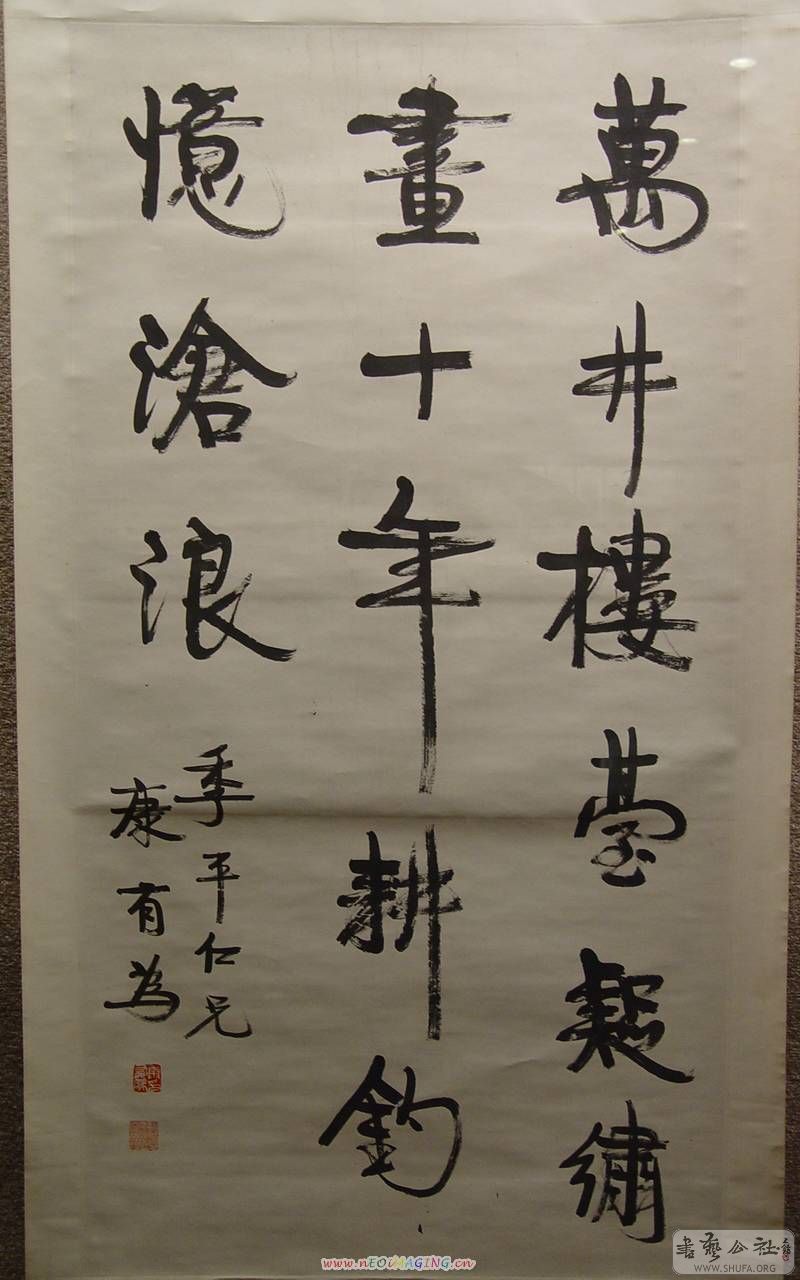 萬井樓臺疑繡
畫十年耕釣
憶滄浪
季平仁兄
康有為
www.nEOiMAGING.cn
書藝公社
WWW.SHUFA.ORG